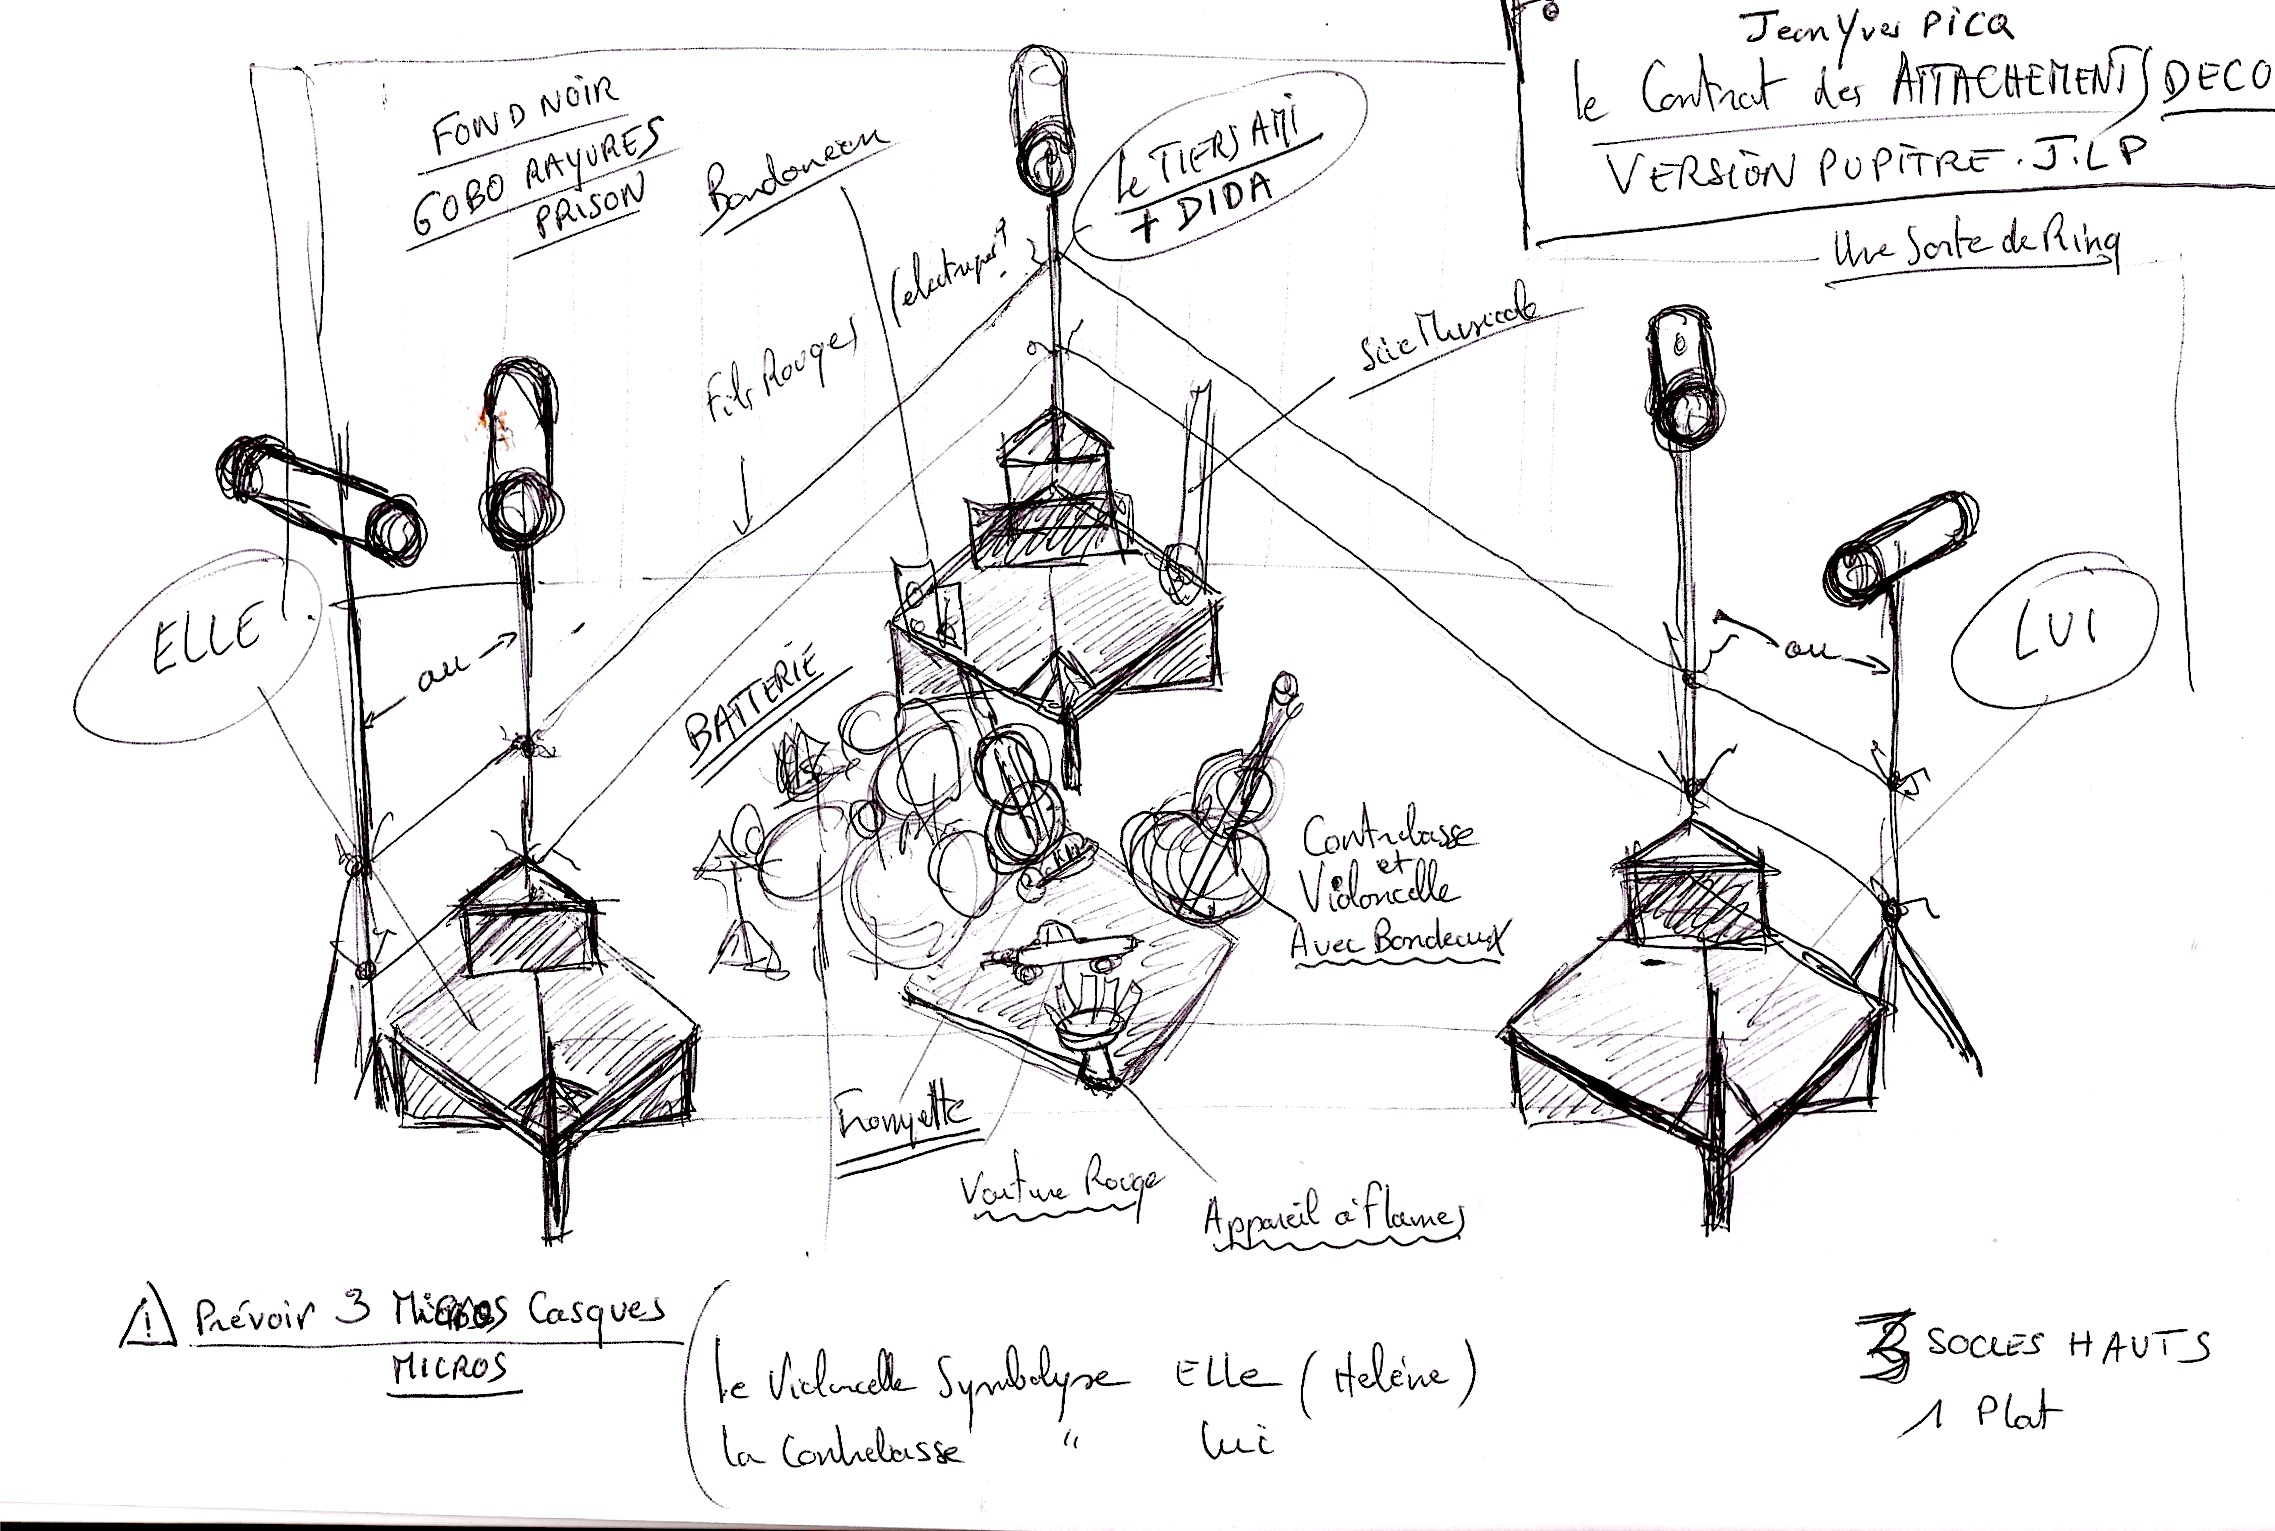 Jean Yves PICQ
le Contrat des ATTACHEMENTS DECO
VERSION PUPITRE . J.L P
Une Sorte de Ring
FOND NOIR
GOBO RAYURES
PRISON
Bandoneon
Le TIERS AMI
+ DIDA
Fils Rouges (electriques?
Scie Musicale
ELLE
ou
ou
LUI
BATTERIE
Contrebasse
et
Violoncelle
Avec Bandeaux
Trompette
Voiture Rouge
Appareil à flames
! Prévoir 3 Micros Casques
MICROS
le Violoncelle Symbolyse ELLe (Helène)
la Contrebasse " Lui
3 SOCLES HAUTS
1 Plat